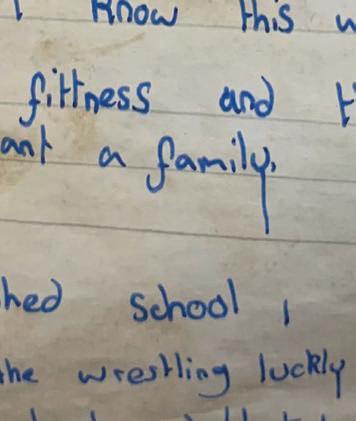 I know this
fittness and
ant a family.
hed school,
the wrestling luckly